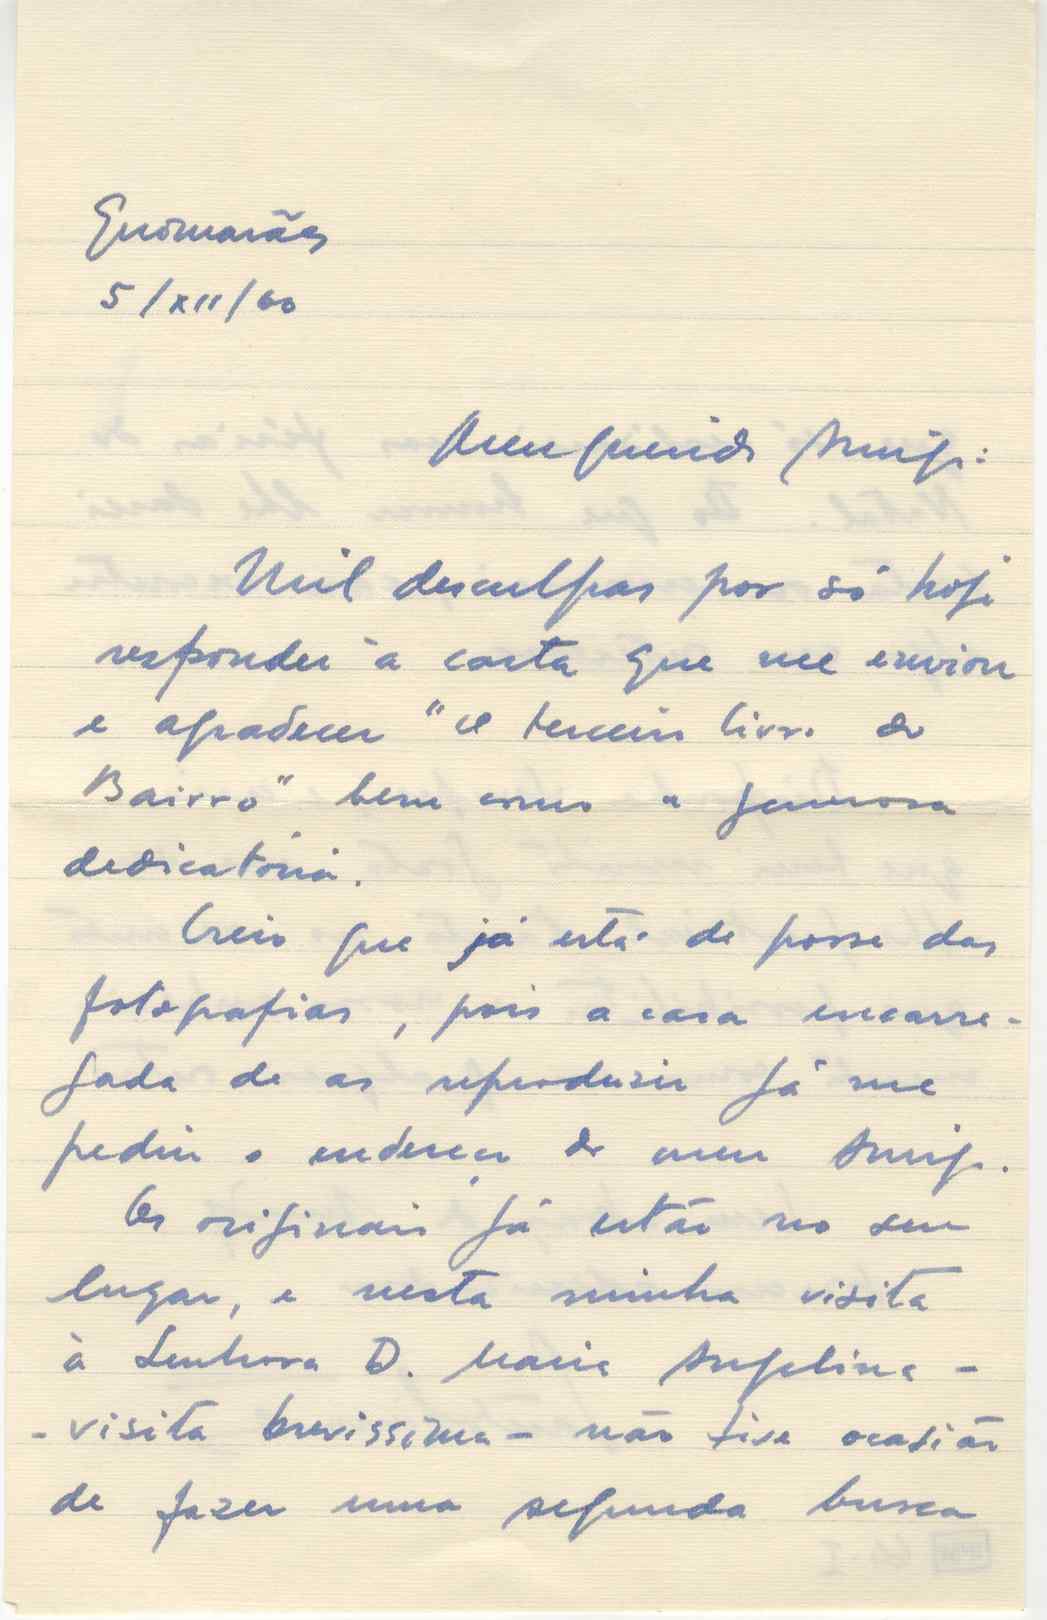 Guimarães
5/XII/60
Meu querido Amigo:
Mil desculpas por só hoje
responder à carta que me enviou
e agradecer "O terceiro livro do
Bairro" bem como a generosa
dedicatória.
Creio que já está de posse das
fotografias, pois a casa encarre-
gada de as reproduzir já me
pediu o endereço do meu Amigo.
Os originais já estão no seu
lugar, e nesta minha visita
à Senhora D. Maria Angelina -
- visita brevissima - não tive ocasião
de fazer uma segunda busca